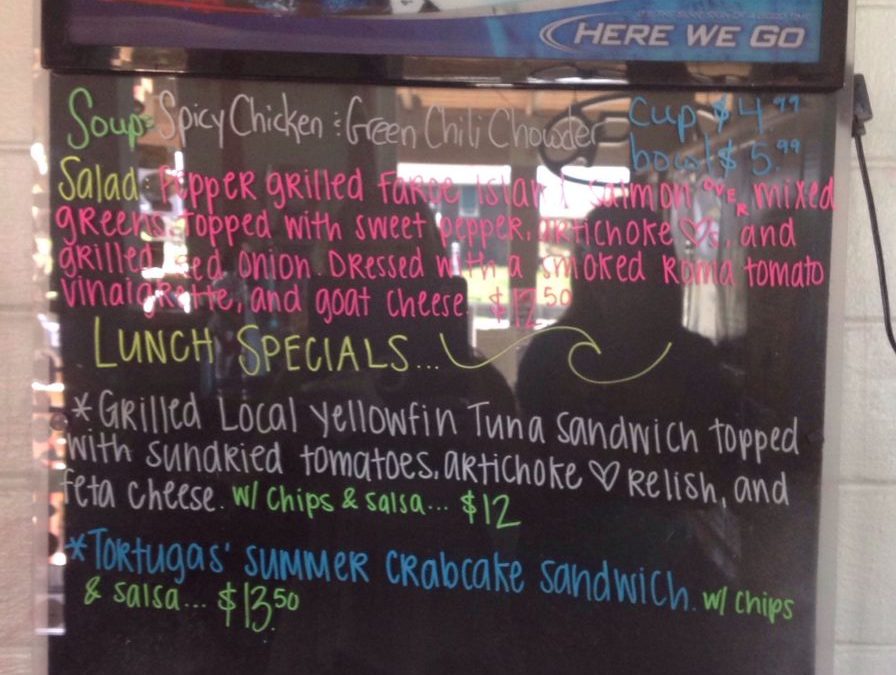 HERE WE GO
Soup: Spicy Chicken & Green Chili Chowder Cup $4.99
bowl $5.99
Salad: Pepper grilled Faroe Island Salmon over mixed
greens, topped with sweet pepper, artichoke ♡s, and
grilled red onion. Dressed with a smoked Roma tomato
vinaigrette, and goat cheese. $12.50
LUNCH SPECIALS...
*Grilled Local Yellowfin Tuna Sandwich topped
with sundried tomatoes, artichoke ♡ Relish, and
feta cheese. w/ chips & salsa... $12
*Tortugas' Summer Crabcake Sandwich. w/ chips
& salsa... $13.50